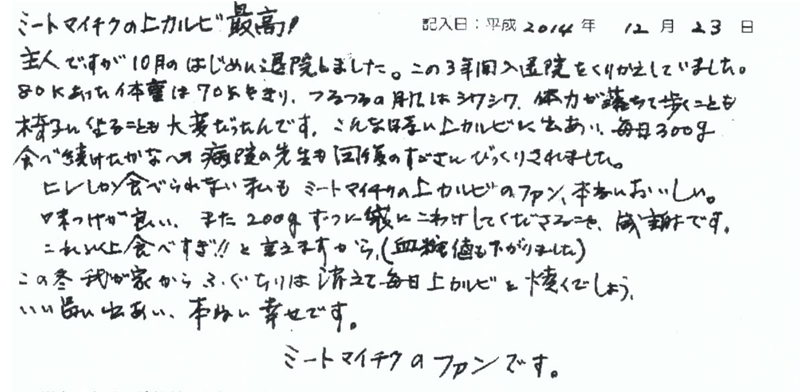 ミートマイチクの上カルビ最高!
記入日:平成2014年12月23日
主人ですが10月のはじめに退院しました。この3年間入退院をくりかえしていました。
80Kあった体重は70Kをきり、つるつるの肌はシワシワ、体力が落ちて歩くことも
椅子に座ることも大変だったんです。こんな時上カルビに出あい、毎日300g
食べ続けたかな 病院の先生も回復のすごさにびっくりされました。
ヒレしか食べられない私もミートマイチクの上カルビのファン、本当においしい。
味つけが良い、また200gずつに袋にこわけしてくださること、感謝です。
これ以上食べすぎ!!と言えますから、(血糖値も下がりました)
この冬我が家からふぐちりは消えて毎日上カルビを焼くでしょう、
いい出あい、本当に幸せです。
ミートマイチクのファンです。